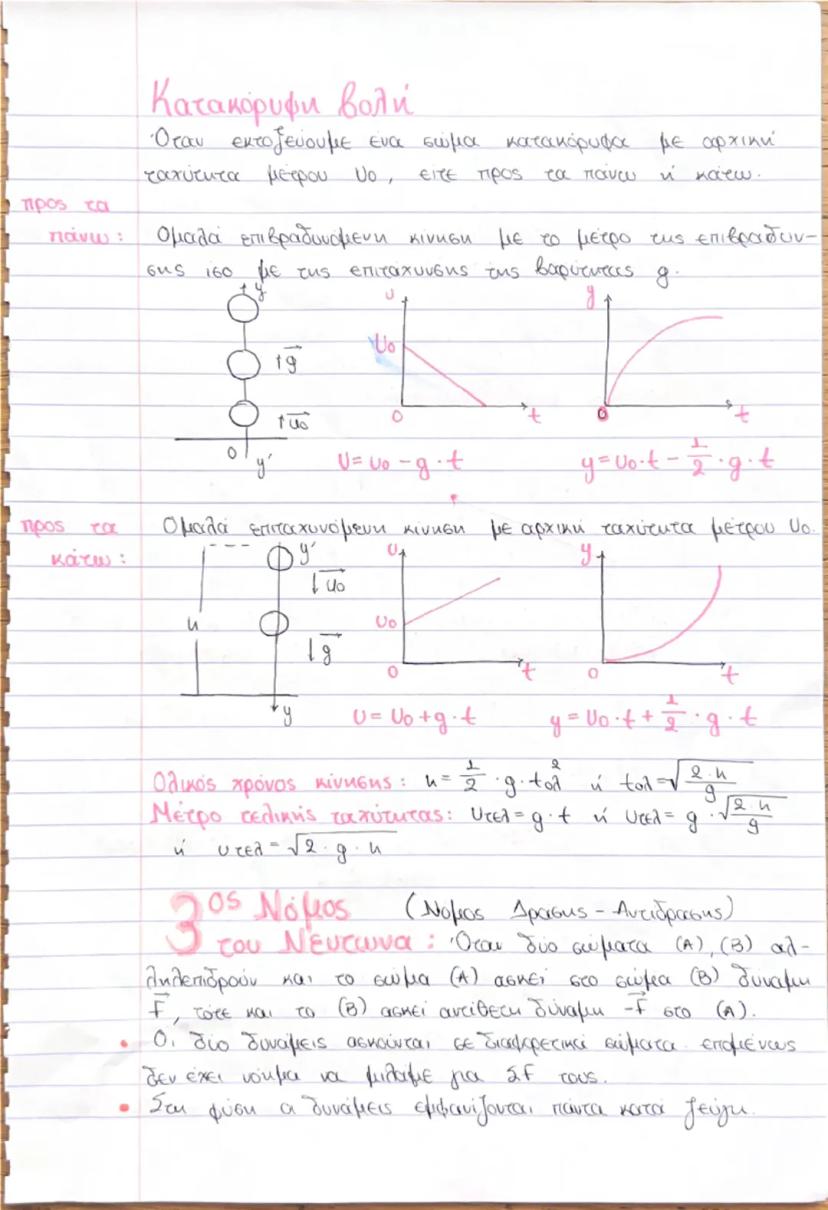 Κατακόρυφη βολή
Όταν εκτοξεύουμε ένα σώμα κατακόρυφα με αρχική
ταχύτητα μέτρου υ₀, είτε προς τα πάνω ή κάτω.
προς τα
πάνω: Ομαλά επιβραδυνόμενη κίνηση με το μέτρο της επιβράδυν-
σης ίσο με της επιτάχυνσης της βαρύτητας g.
y υ y
υ₀
↑g
↑υ₀ 0 t 0 t
0 y'
υ=υ₀-g·t y=υ₀·t-1/2·g·t
προς τα Ομαλά επιταχυνόμενη κίνηση με αρχική ταχύτητα μέτρου υ₀.
κάτω: y' υ y
↓υ₀
h υ₀
↓g
0 t 0 t
y υ=υ₀+g·t y=υ₀·t+1/2·g·t
Ολικός χρόνος κίνησης: h=1/2·g·tολ² ή tολ=√(2·h/g)
Μέτρο τελικής ταχύτητας: υτελ=g·t ή υτελ=g·√(2·h/g)
ή υτελ=√(2·g·h)
3ος Νόμος (Νόμος Δράσης-Αντίδρασης)
του Νεύτωνα: Όταν δύο σώματα (Α),(Β) αλ-
ληλεπιδρούν και το σώμα (Α) ασκεί στο σώμα (Β) δύναμη
F, τότε και το (Β) ασκεί αντίθετη δύναμη -F στο (Α).
• Οι δύο δυνάμεις ασκούνται σε διαφορετικά σώματα επομένως
δεν έχει νόημα να μιλάμε για ΣF τους.
• Στη φύση οι δυνάμεις εμφανίζονται πάντα κατά ζεύγη.